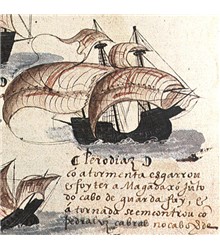 Pero diaz
cõ a tormenta esgarrou
& foy ter a Magadaxó Jũto
do cabo de guarda fuy, &
a tornada se emcontrou cõ
cabral no cabo